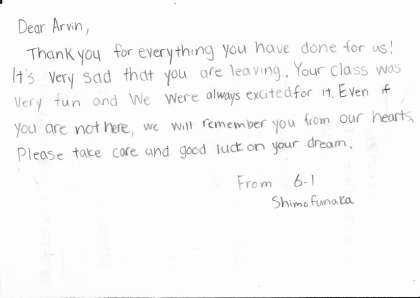 Dear Arvin,
Thank you for everything you have done for us!
It's very sad that you are leaving. Your class was
very fun and we were always excited for it. Even if
you are not here, we will remember you from our hearts.
Please take care and good luck on your dream.
From 6-1
Shimofunaka